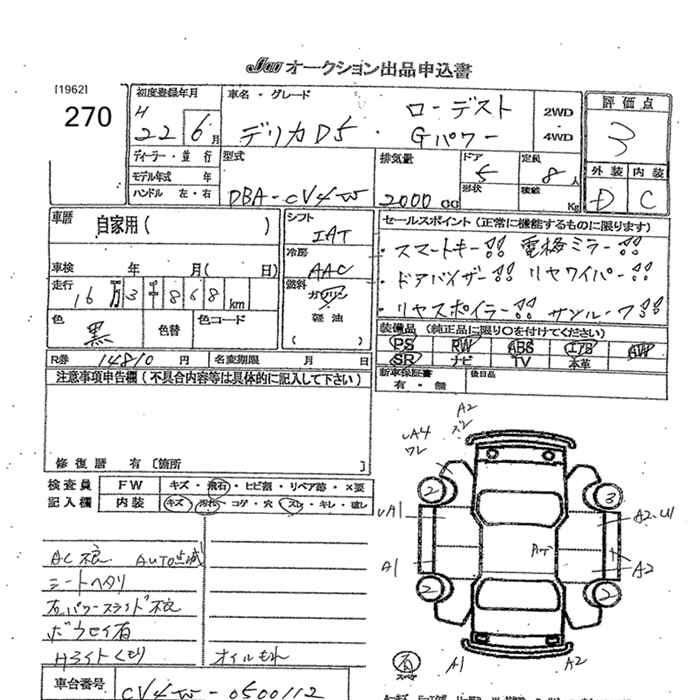 JU オークション出品申込書
[1962]
270
初度登録年月
H
22 6月
車名・グレード
デリカD5 ・ ローデスト
Gパワー
2WD
4WD
評価点
3
外装 内装
D C
ディーラー・並行
モデル年式 年
ハンドル 左・右
型式
DBA-CV4W
排気量
2000 CC
ドア
5
形状
定員
8人
積載
Kg
車歴
自家用( )
車検 年 月( 日)
走行
16万3千868km
色
黒
色替
色コード
シフト
IAT
冷房
AAC
燃料
ガソリン
軽油
( )
セールスポイント(正常に機能するものに限ります)
・スマートキー!! 電格ミラー!!
・ドアバイザー!! リヤワイパー!!
・リヤスポイラー!! サンルーフ!!
装備品 (純正品に限り○を付けてください)
PS RW ABS エアB AW
SR ナビ TV 本革
新車保証書
有・無
後日品
R券 14810 円
名変期限 月 日
注意事項申告欄(不具合内容等は具体的に記入して下さい)
修復歴 有 〔箇所
検査員
記入欄
FW キズ・飛石・ヒビ割・リペア跡・×要
内装 キズ・汚れ・コゲ・穴・スレ・キレ・破レ
AC不良 AUTO点滅
シートヘタリ
左パワースライド不良
ボウセイ有
Hライトくもり オイルもれ
車台番号
CV4W-0500112
A2
スレ
A4
ワレ
2
3
A1
A2
A1
A2
2
2
A1
A2
スペケ